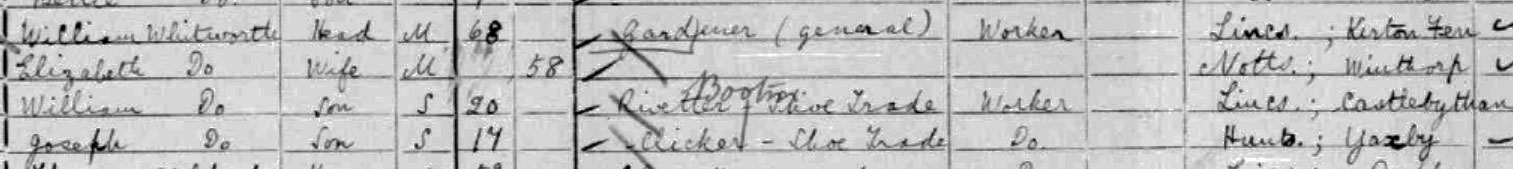 William Whitworth Head M 68 Gardener (general) Worker Lincs. ; Kirton Fen
Elizabeth Do Wife M 58 Notts. ; Winthorp
William Do Son S 20 Rivetter Boot Shoe Trade Worker Lincs. ; Castlebythan
Joseph Do Son S 17 - Clicker - Shoe Trade Do. Hunts. ; Yaxby